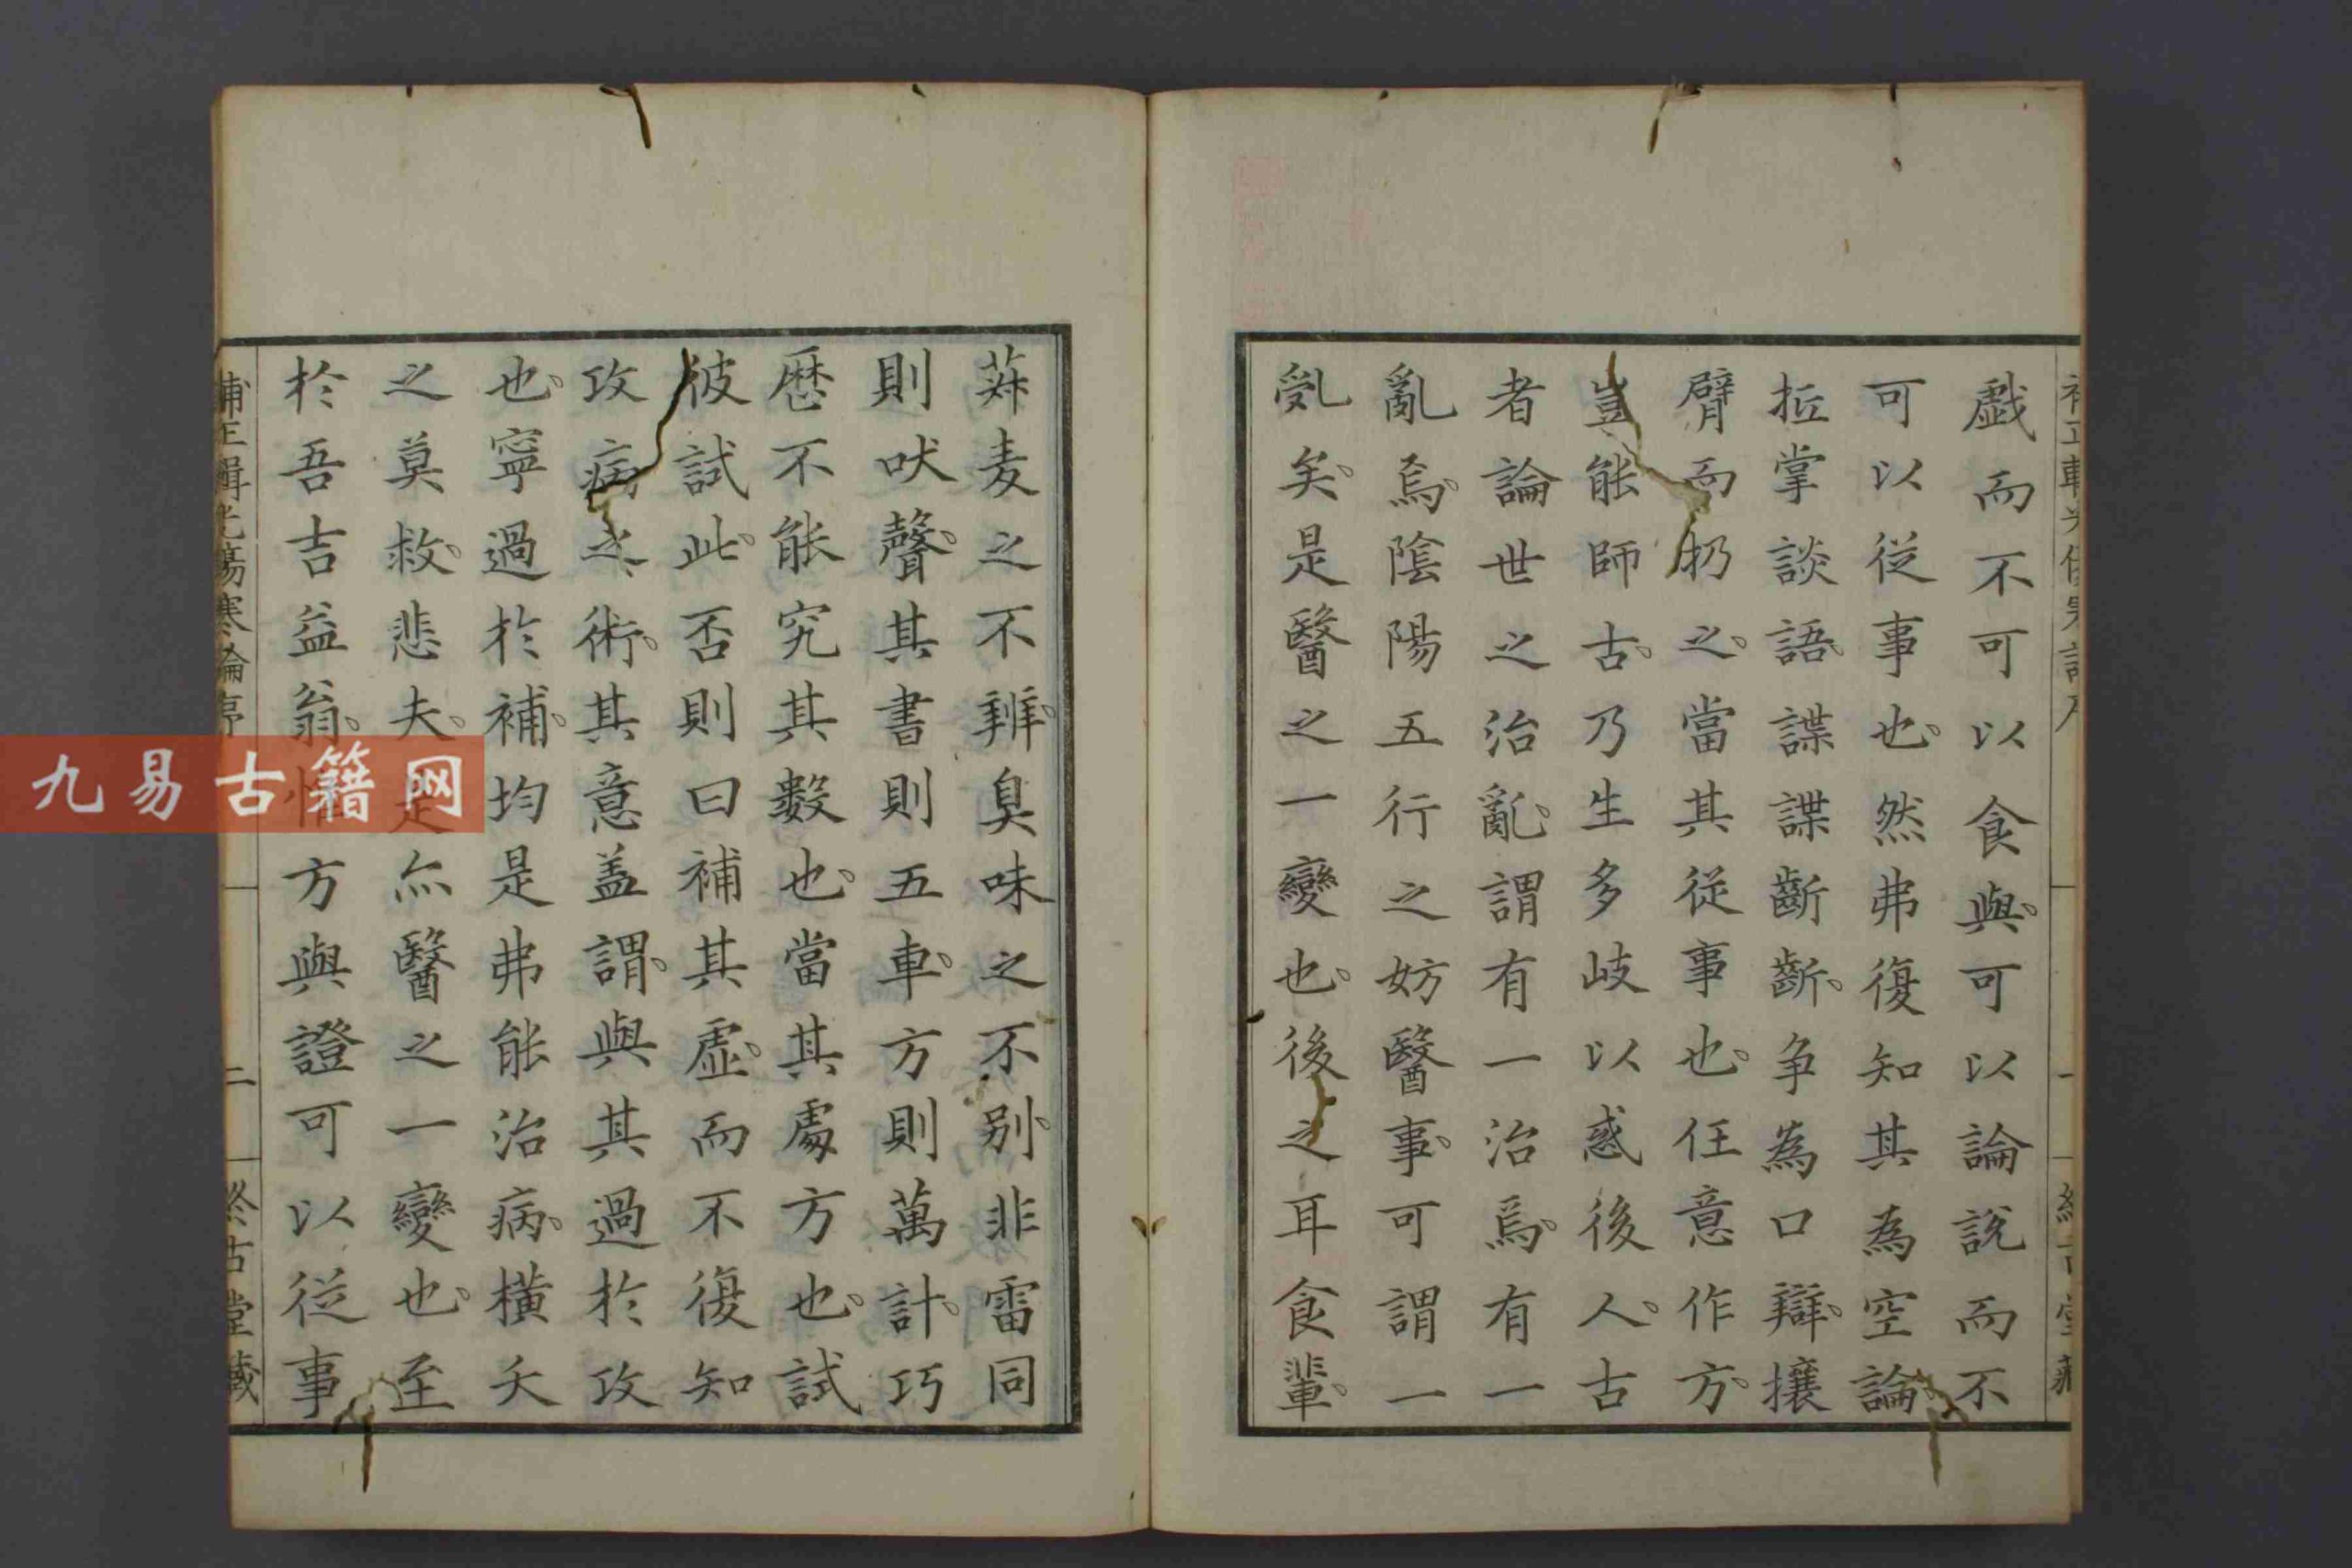 戱而不可以食與可以論說而不
可以從事也然弗復知其為空論
抵掌談語諜諜齗齗争為口辯攘
臂而扔之當其從事也任意作方
豈能師古乃生多岐以惑後人古
者論世之治亂謂有一治焉有一
亂焉陰陽五行之妨醫事可謂一
亂矣是醫之一變也後之耳食輩
菽麦之不辨臭味之不别非雷同
則吠聲其書則五車方則萬計巧
歷不能究其數也當其處方也試
彼試此否則曰補其虛而不復知
攻病之術其意盖謂與其過於攻
也寧過於補均是弗能治病橫夭
之莫救悲夫是亦醫之一變也至
於吾吉益翁方與證可以從事
補正輯光傷寒論序
二
終古堂藏
九易古籍网